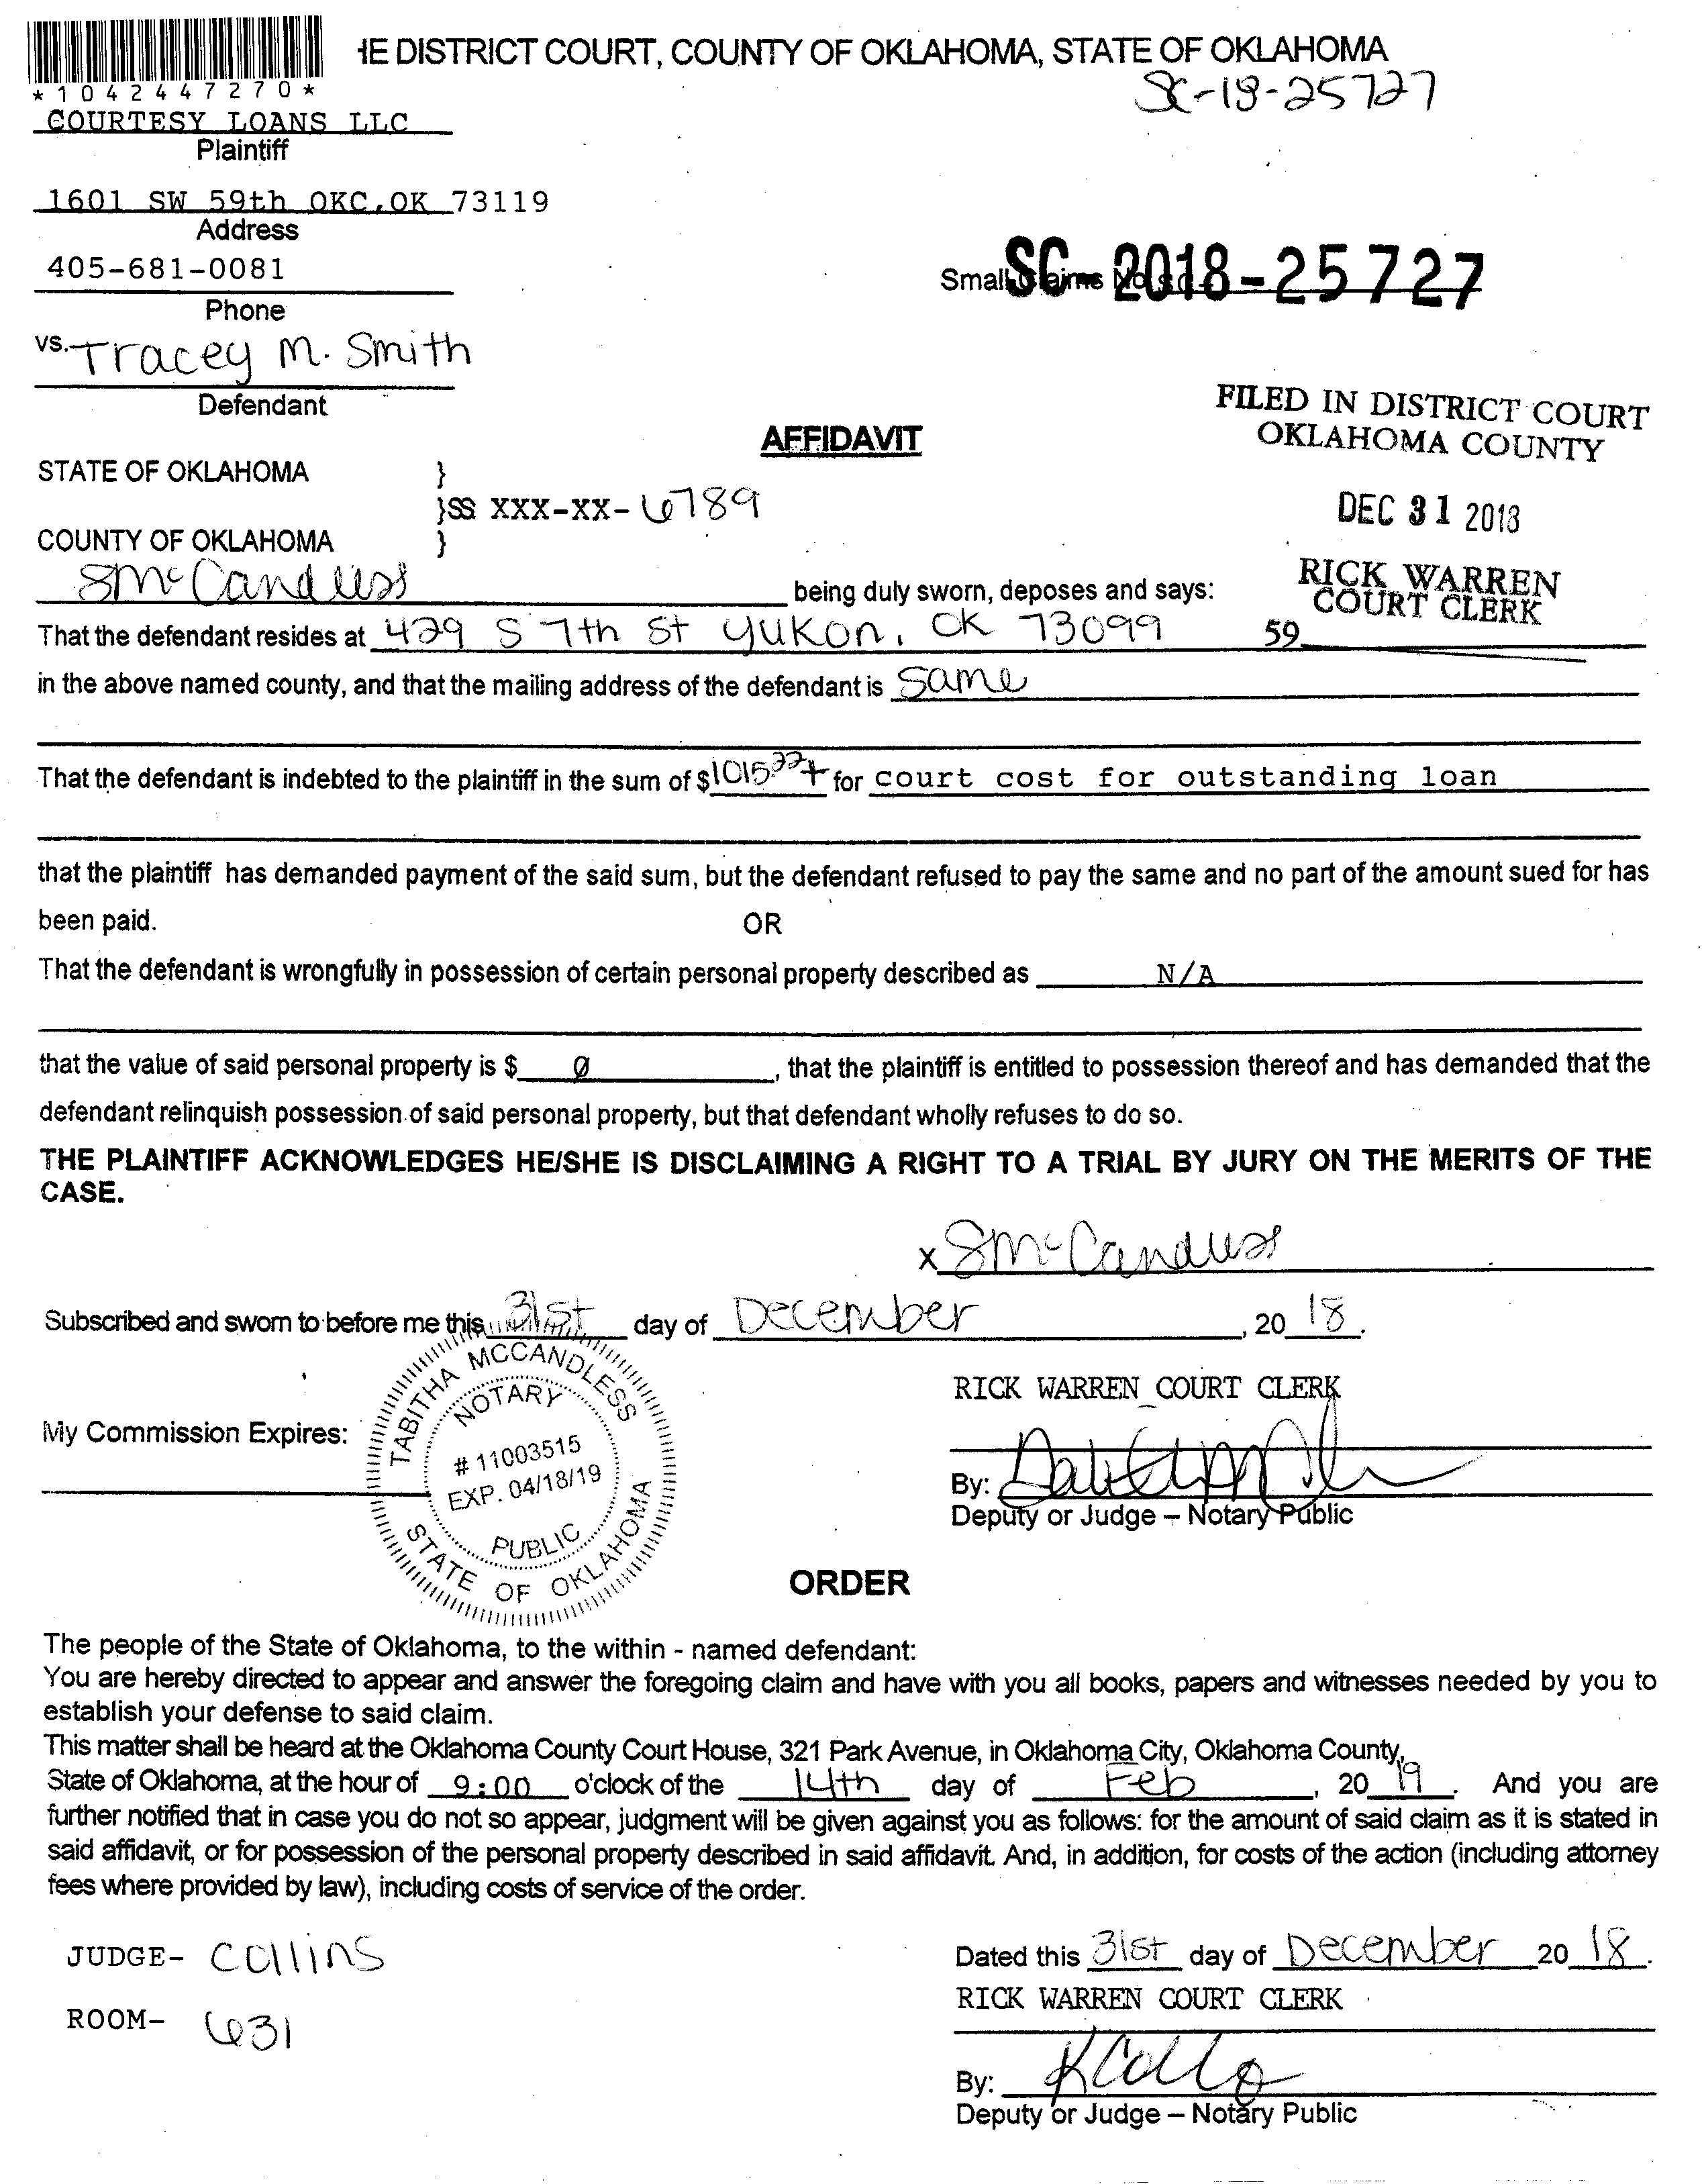 IE DISTRICT COURT, COUNTY OF OKLAHOMA, STATE OF OKLAHOMA
SC-18-25727
*1042447270*
COURTESY LOANS LLC
Plaintiff
1601 SW 59th OKC,OK 73119
Address
405-681-0081
Phone
Small Claims No. SC-2018-25727
vs. Tracey M. Smith
Defendant
FILED IN DISTRICT COURT
OKLAHOMA COUNTY
AFFIDAVIT
STATE OF OKLAHOMA }
}SS XXX-XX-6789
DEC 31 2018
COUNTY OF OKLAHOMA }
RICK WARREN
COURT CLERK
SMcCandless being duly sworn, deposes and says:
59
That the defendant resides at 429 S 7th St Yukon, OK 73099
in the above named county, and that the mailing address of the defendant is Same
That the defendant is indebted to the plaintiff in the sum of $1015.22+ for court cost for outstanding loan
that the plaintiff has demanded payment of the said sum, but the defendant refused to pay the same and no part of the amount sued for has
been paid.
OR
That the defendant is wrongfully in possession of certain personal property described as N/A
that the value of said personal property is $ 0, that the plaintiff is entitled to possession thereof and has demanded that the
defendant relinquish possession of said personal property, but that defendant wholly refuses to do so.
THE PLAINTIFF ACKNOWLEDGES HE/SHE IS DISCLAIMING A RIGHT TO A TRIAL BY JURY ON THE MERITS OF THE
CASE.
x SMcCandless
Subscribed and sworn to before me this 31st day of December, 20 18.
TABITHA MCCANDLESS
NOTARY
# 11003515
EXP. 04/18/19
PUBLIC
STATE OF OKLAHOMA
RICK WARREN COURT CLERK
My Commission Expires:
By:
Deputy or Judge – Notary Public
ORDER
The people of the State of Oklahoma, to the within - named defendant:
You are hereby directed to appear and answer the foregoing claim and have with you all books, papers and witnesses needed by you to
establish your defense to said claim.
This matter shall be heard at the Oklahoma County Court House, 321 Park Avenue, in Oklahoma City, Oklahoma County,
State of Oklahoma, at the hour of 9:00 o'clock of the 14th day of Feb, 20 19. And you are
further notified that in case you do not so appear, judgment will be given against you as follows: for the amount of said claim as it is stated in
said affidavit, or for possession of the personal property described in said affidavit. And, in addition, for costs of the action (including attorney
fees where provided by law), including costs of service of the order.
JUDGE- Collins
Dated this 31st day of December 20 18.
RICK WARREN COURT CLERK
ROOM- 631
By:
Deputy or Judge – Notary Public